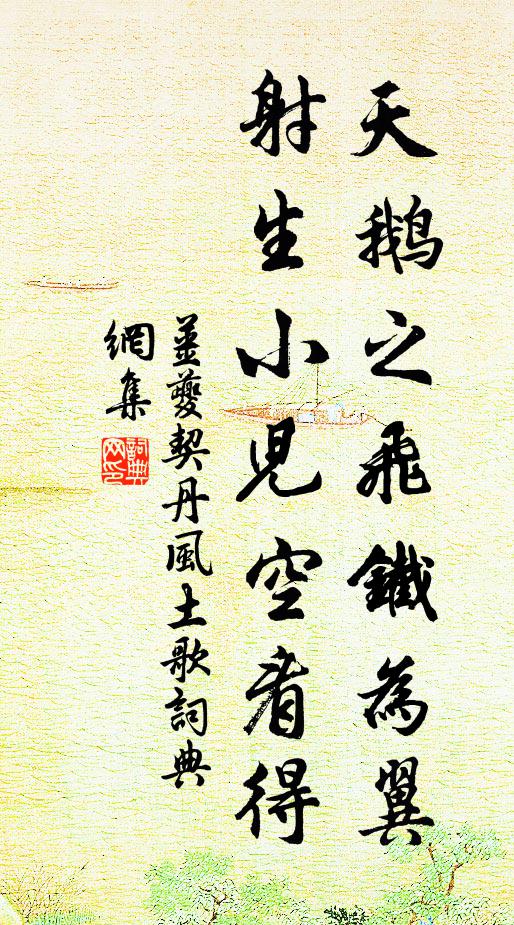 天鵝之飛鐵為翼
射生小兒空看得
姜夔契丹風土歌詞典
網集
詞典
网印